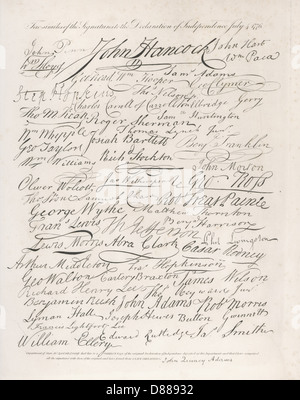 Fac-similes of the Signatures to the Declaration of Independence July 4 1776.
John Penn John Hancock John Hart
Wm Paca
Richard Wm Hooper Saml Adams
Step Hopkins Ths Nelson Geo Clymer
Charles Carroll of Carrollton Elbridge Gerry
Tho M:Kean Roger Sherman Sam Huntington
Wm Whipple Thomas Lynch Junr
Geo Taylor Josiah Bartlett Benj Franklin
Wm Williams Richd Stockton John Morton
Oliver Wolcott Geo Ross
Thos Stone Robt Treat Paine
George Wythe Matthew Thornton
Fran Lewis Th Jefferson Benj Harrison
Lewis Morris Abra Clark Caesar Rodney
Arthur Middleton Fras Hopkinson
Geo Walton Carter Braxton James Wilson
Richard Henry Lee Tho Heyward Junr
Benjamin Rush John Adams Robt Morris
Lyman Hall Joseph Hewes Button Gwinnett
Francis Lightfoot Lee
William Ellery Edward Rutledge Jas Smith
John Quincy Adams
alamy
D88932